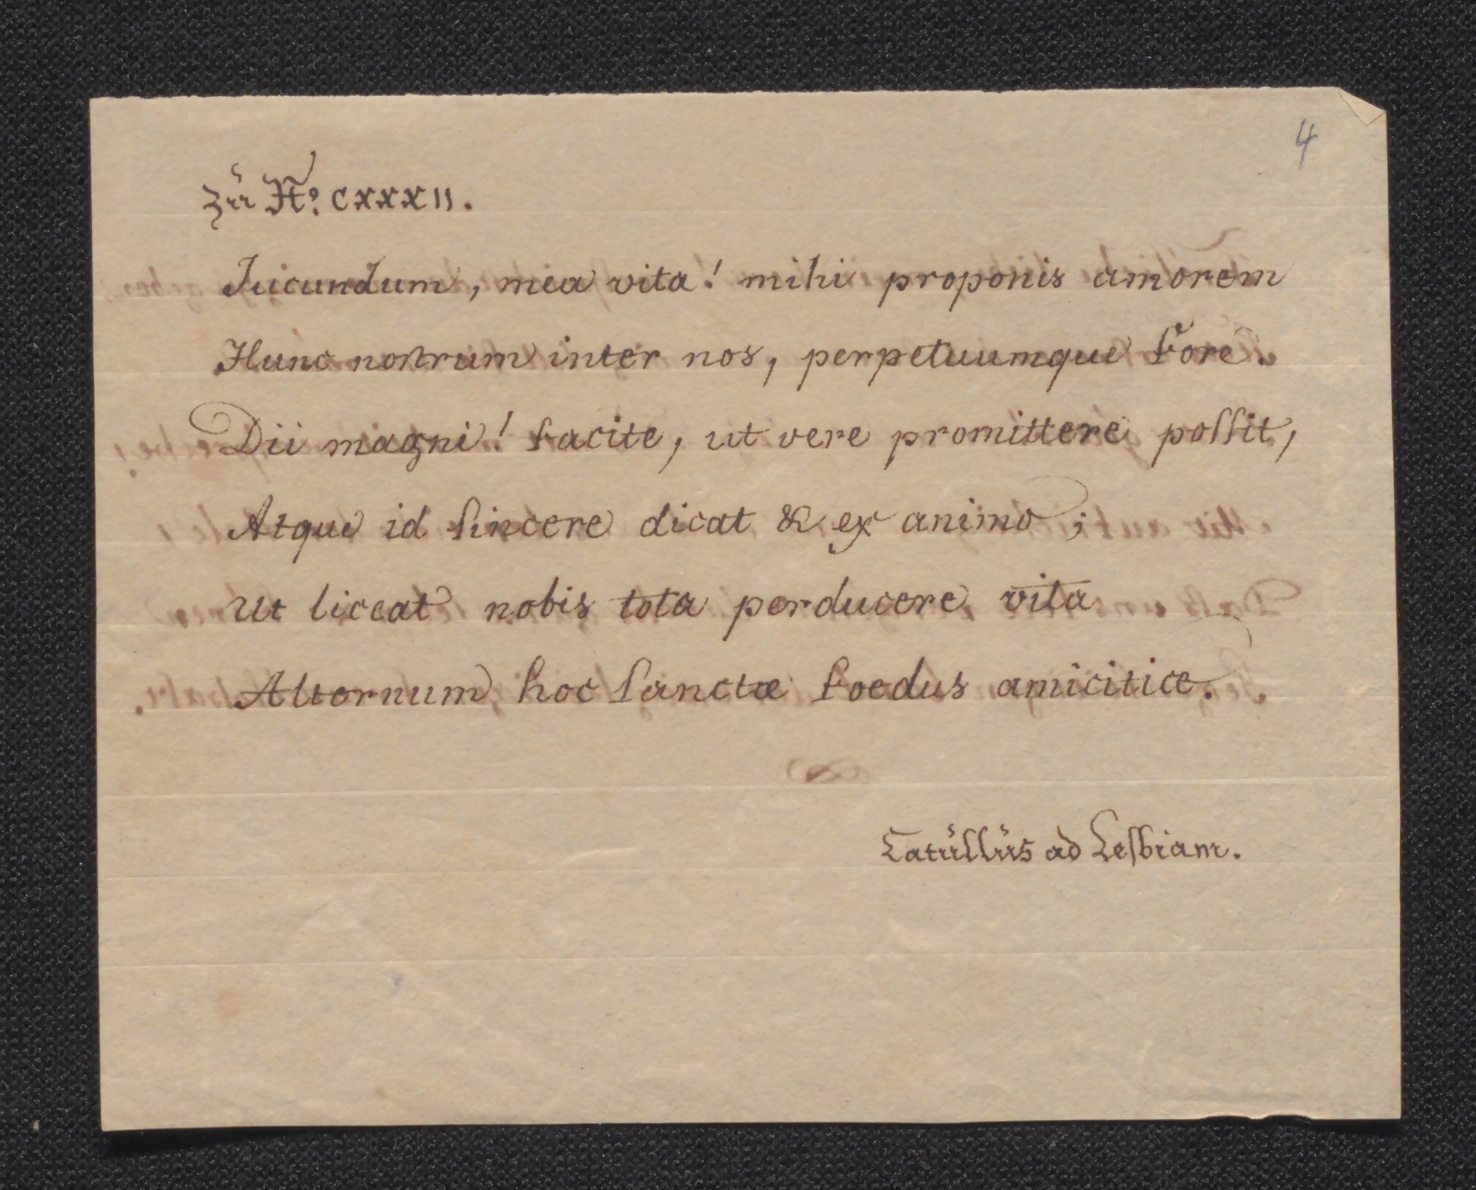 4
zu No. CXXXII.
Jucundum, mea vita! mihi proponis amorem
Hunc nostrum inter nos, perpetuumque fore.
Dii magni! facite, ut vere promittere poſſit,
Atque id ſincere dicat & ex animo;
Ut liceat nobis tota perducere vita
Alternum hoc ſanctæ foedus amicitiæ.
Catullus ad Leſbiam.